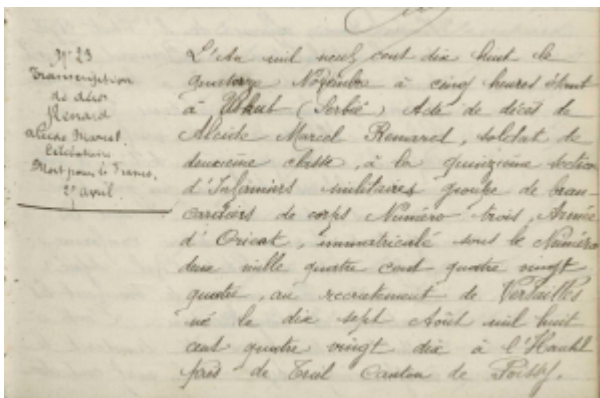 N° 23
Transcription
de décès
Renard
Alcide Marcel.
Célibataire
Mort pour la France.
27 avril
L'An mil neuf cent dix huit le
quatorze Novembre à cinq heures étant
à (Serbie) Acte de décès de
Alcide Marcel Renard, soldat de
deuxième classe, à la quinzième section
d'Infirmiers militaires groupe de bran-
cardiers de corps Numéro trois, Armée
d'Orient, immatriculé sous le Numéro
deux mille quatre cent quatre vingt
quatre, au recrutement de Versailles
né le dix sept Août mil huit
cent quatre vingt dix à l'Hautil
de Triel Canton de Poissy.